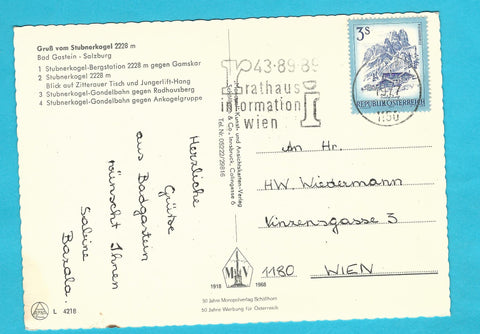 Gruß vom Stubnerkogel 2228 m
Bad Gastein - Salzburg
1 Stubnerkogel-Bergstation 2221 m gegen Gamskar
2 Stubnerkogel 2228 m
Blick auf Zitterauer Tisch und Jungerlift-Hang
3 Stubnerkogel-Gondelbahn gegen Radhausberg
4 Stubnerkogel-Gondelbahn gegen Ankogelgruppe
Herzliche
Grüße
aus Badgastein
wünscht Ihnen
Sabine
L 4218
43-89-89
rathaus
information
wien
3S
REPUBLIK ÖSTERREICH
1977
1150
Kunst- und Ansichtskarten-Verlag
& Co., Innsbruck,
Tel. Nr. 05222/29816
An Hr.
HW. Wiedermann
Vinzensgasse 3
1180 WIEN
1918
1968
50 Jahre Monopolverlag Schöllhorn
50 Jahre Werbung für Österreich